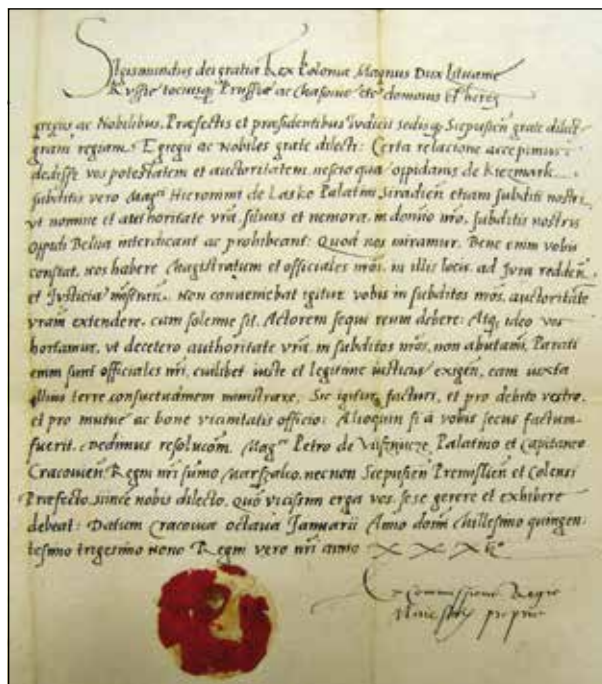 Sigismundus dei gratia Rex Poloniæ Magnus Dux Lituanie
Russie tociusq Prussie ac Masouie etc dominus et heres
gregiis ac Nobilibus, Præfectis et præsidentibus iudicii sedis Scepusien grate dilect
gram regiam. Egregii ac Nobiles grate dilecti: Certa relacione accepimus
dedisse vos potestatem et auctoritatem, nescio qua oppidanis de Kiezmark
subditis vero Magci Hieronimi de Lasko Palatini Siradien etiam subditi nostri
vt nomine et authoritate vra, siluas et nemora, in domio nro, subditis nostris
Oppidi Beliua interdicant ac prohibeant: Quod nos miramur. Bene enim vobis
constat, nos habere Magistratum et officiales nros, in illis locis, ad Jura redden
et Justicia mistran. Non conueniebat igitur vobis in subditos nros, auctoritate
vram extendere, cum solenne sit, Actorem sequi reum debere: Atq ideo vos
hortamur, vt decetero authoritate vra, in subditos nros, non abutami. Parati
enim sunt officiales nri, cuilibet iuste et legitime iusticia exigen, eam iuxta
illius terre consuetudinem ministrare. Sic igitur facturi, et pro debito vestro,
et pro mutue ac bone vicinitatis officio: Alioquin si a vobis secus factum
fuerit, dedimus resolucom, Magco Petro de Palatino et Capitaneo
Cracouien, Regni nri sumo Marszalco, necnon Scepusien Premislien et Colensi
Præfecto, since nobis dilecto, quo vicissim erga vos sese gerere et exhibere
debeat: Datum Cracouiæ octaua Januarii Anno domi Millesimo quingen:
tesimo trigesimo nono Regni vero nri anno
Ex commissione Regie
Maiestatis propria